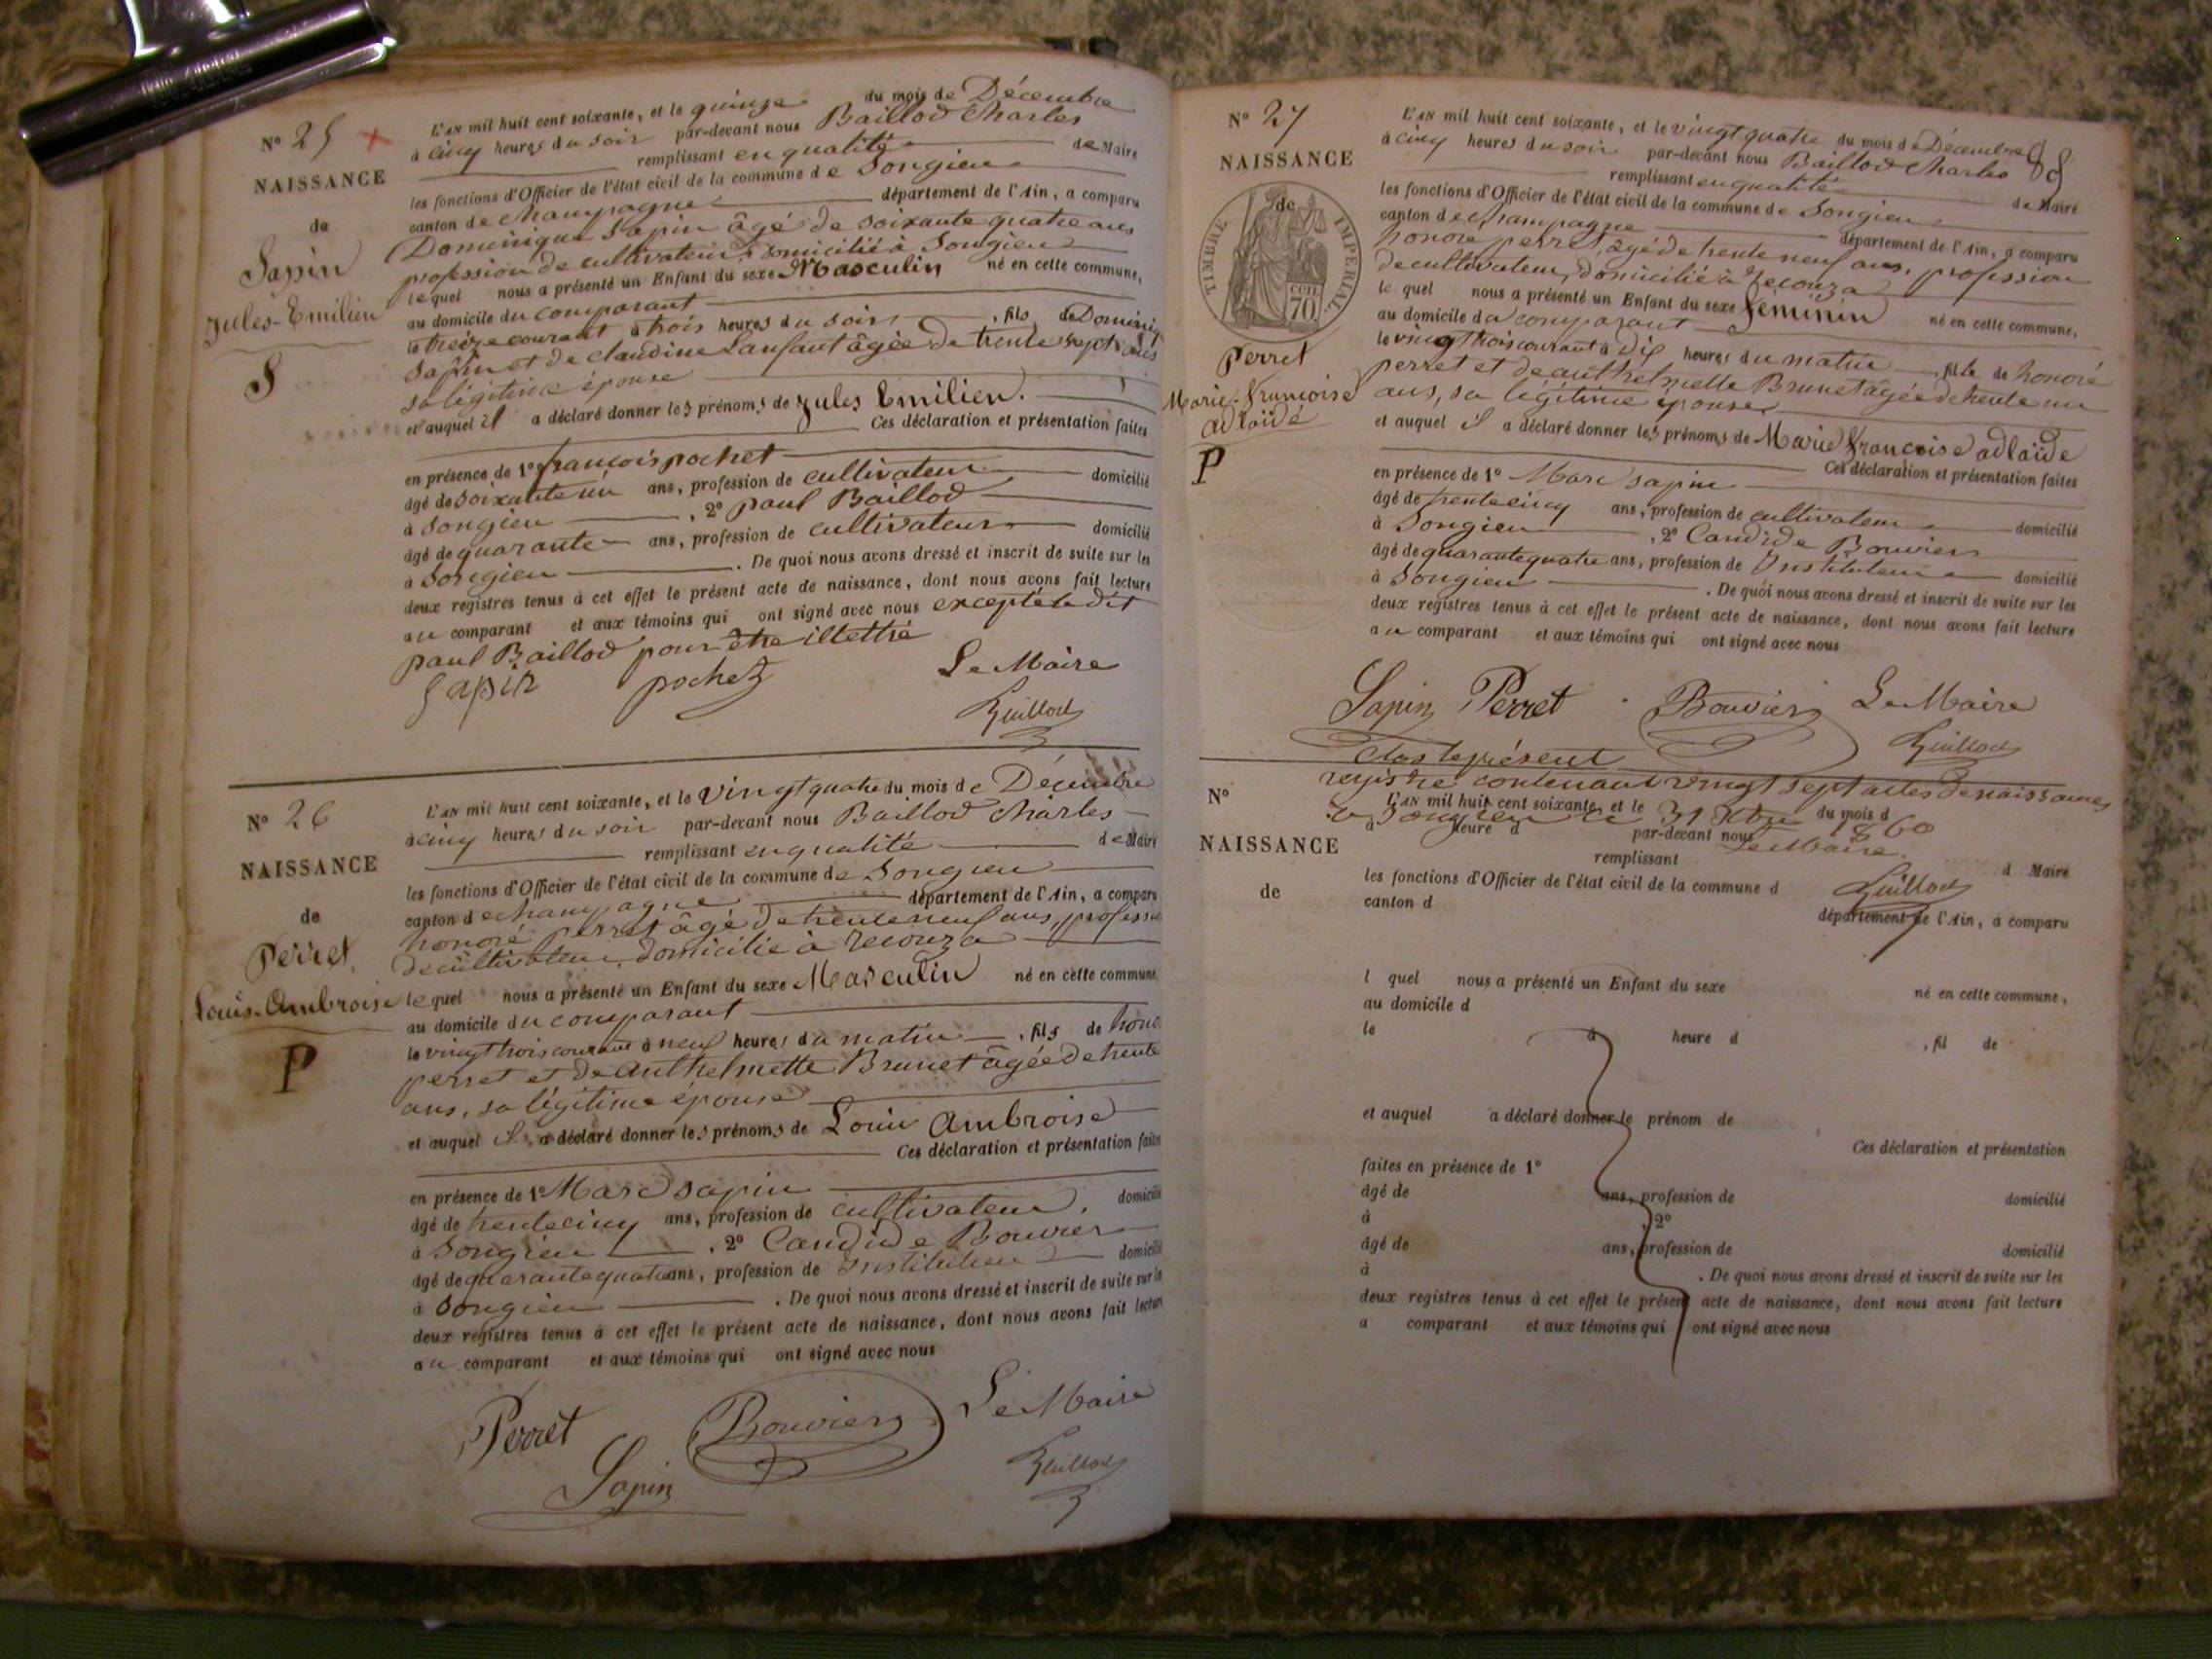 N° 25
NAISSANCE
de
Sapin
Jules-Emilien
S
L'AN mil huit cent soixante, et le quinze du mois de Décembre
à cinq heures du soir par-devant nous Baillod Charles
remplissant en qualité de Maire
les fonctions d'Officier de l'état civil de la commune de Songieu
canton de champagne département de l'Ain, a comparu
Dominique Sapin âgé de soixante quatre ans
profession de cultivateur, domicilié à Songieu
lequel nous a présenté un Enfant du sexe Masculin né en cette commune,
au domicile du comparant
le treize courant à trois heures du soir, fils de Dominiq
sapin et de claudine Lanfant âgée de trente sept ans
sa légitime épouse
et auquel il a déclaré donner les prénoms de Jules Emilien.
Ces déclaration et présentation faites
en présence de 1° francois pochet
âgé de soixante un ans, profession de cultivateur domicilié
à Songieu, 2° paul Baillod
âgé de quarante ans, profession de cultivateur domicilié
à Songieu. De quoi nous avons dressé et inscrit de suite sur les
deux registres tenus à cet effet le présent acte de naissance, dont nous avons fait lecture
au comparant et aux témoins qui ont signé avec nous excepté le dit
paul Baillod pour être illettré
Sapin pochet Le Maire
Baillod
N° 26
NAISSANCE
de
Perret
Louis-Ambroise
P
L'AN mil huit cent soixante, et le vingt quatre du mois de Décembre
à cinq heures du soir par-devant nous Baillod Charles
remplissant en qualité de Maire
les fonctions d'Officier de l'état civil de la commune de Songieu
canton de champagne département de l'Ain, a comparu
honoré perret âgé de trente neuf ans, professio
de cultivateur, domicilié à
lequel nous a présenté un Enfant du sexe Masculin né en cette commune,
au domicile du comparant
le vingt trois courant à neuf heures du matin, fils de hono
perret et de Anthelmette Brunet âgée de trente
ans, sa légitime épouse
et auquel il a déclaré donner les prénoms de Louis Ambroise
Ces déclaration et présentation faites
en présence de 1° Marc sapin
âgé de trente cinq ans, profession de cultivateur, domicilié
à Songieu, 2° Candide Bouvier
âgé de quarante quatre ans, profession de Instituteur domicilié
à Songieu. De quoi nous avons dressé et inscrit de suite sur les
deux registres tenus à cet effet le présent acte de naissance, dont nous avons fait lecture
au comparant et aux témoins qui ont signé avec nous
Perret Bouvier Le Maire
Sapin Baillod
N° 27
NAISSANCE
de
TIMBRE IMPERIAL
cen. 70
Perret
Marie-Francoise
adlaïde
P
L'AN mil huit cent soixante, et le vingt quatre du mois de Décembre
à cinq heures du soir par-devant nous Baillod Charles
remplissant en qualité de Maire
les fonctions d'Officier de l'état civil de la commune de Songieu
canton de champagne département de l'Ain, a comparu
honoré perret, âgé de trente neuf ans, profession
de cultivateur, domicilié à
lequel nous a présenté un Enfant du sexe féminin né en cette commune,
au domicile du comparant
le vingt trois courant à dix heures du matin, fille de honoré
perret et de anthelmette Brunet âgée de trente un
ans, sa légitime épouse
et auquel il a déclaré donner les prénoms de Marie francoise adlaïde
Ces déclaration et présentation faites
en présence de 1° Marc sapin
âgé de trente cinq ans, profession de cultivateur domicilié
à Songieu, 2° Candide Bouvier
âgé de quarante quatre ans, profession de Instituteur domicilié
à Songieu. De quoi nous avons dressé et inscrit de suite sur les
deux registres tenus à cet effet le présent acte de naissance, dont nous avons fait lecture
au comparant et aux témoins qui ont signé avec nous
Sapin Perret Bouvier Le Maire
Baillod
clos le présent
registre contenant vingt sept actes de naissances
à Songieu le 31 Xbre 1860
Le Maire
Baillod
N°
NAISSANCE
de
L'AN mil huit cent soixante, et le du mois d
à heure d par-devant nous
remplissant d Maire
les fonctions d'Officier de l'état civil de la commune d
canton d département de l'Ain, a comparu
l quel nous a présenté un Enfant du sexe né en cette commune,
au domicile d
le à heure d, fil de
et auquel a déclaré donner le prénom de
Ces déclaration et présentation
faites en présence de 1°
âgé de ans, profession de domicilié
à, 2°
âgé de ans, profession de domicilié
à. De quoi nous avons dressé et inscrit de suite sur les
deux registres tenus à cet effet le présent acte de naissance, dont nous avons fait lecture
a comparant et aux témoins qui ont signé avec nous